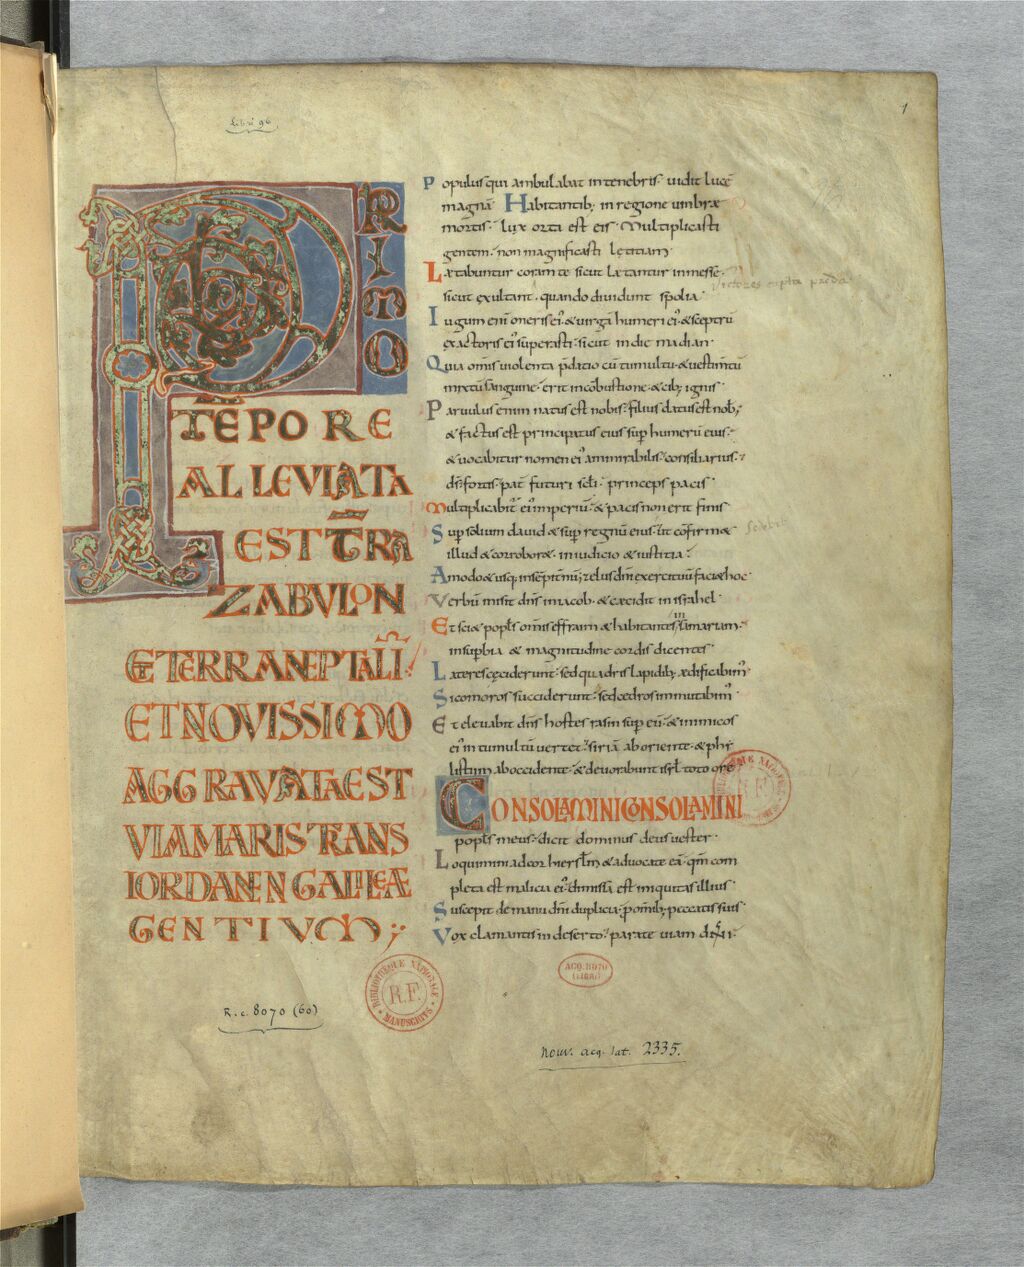 1
Libri 96
PRIMO
TĒPORE
ALLEVIATA
EST T̄RA
ZABVLON
ET TERRA NEPTALI
ET NOVISSIMO
AGGRAVATA EST
VIA MARIS TRANS
IORDANEN GALILEÆ
GENTIVM;
Populus qui ambulabat in tenebris· uidit lucē
magnā Habitantib; in regione umbræ
mortis· lux orta est eis· Multiplicasti
gentem· non magnificasti lętitiam
Lætabuntur coram te sicut lætantur in messe·
sicut exultant· quando diuidunt spolia·
Iugum eni oneris ei'· & uirgā humeri ei'· & sceptrū
exactoris ei' superasti· sicut in die madian·
Quia omīs uiolenta p̄datio cū tumultu· & uestimtū
mixtū sanguine· erit in cōbustione· & cib; ignis·
Paruulus enim natus est nobis· filius datus est nob;
& factus est principatus eius sup humerū eius·
& uocabitur nomen ei' ammirabilis· consiliarius·
d̄s· fortis· pat̄ futuri sc̄li· princeps pacis·
Multiplicabit̄ ei' imperiū· & pacis non erit finis
Sup solium dauid & sup regnū eius· ut cōfirm&
illud & corrobor&· in iudicio & iustitia·
Amodo & usq; in sēpit̄nū; zelus dn̄i exercituū faci& hoc
Verbū misit dn̄s in iacob· & cecidit in israhel·
Et sci& popl̄s omīs effraim & habitantes in samariam·
in supbia & magnitudine cordis dicentes
Lateres ceciderunt· sed quadris lapidib; ædificabim'
Sicomoros succiderunt· sed cedros inmutabim'
Et eleuabit dn̄s hostes rasin sup eū· & inimicos
ei' in tumultū uertet· siriā ab oriente· & phi
listiim ab occidente· & deuorabunt isrl̄ toto ore·
CONSOLAMINI CONSOLAMINI
popl̄s meus· dicit dominus deus uester·
Loquimini ad cor hierl̄m & aduocate eā· qm̄ com
pleta est malicia ei'· dimissa est iniquitas illius·
Suscepit de manu dn̄i duplicia· p omīb; peccatis suis·
Vox clamantis in deserto· parate uiam dn̄i·
victores capta preda
BIBLIOTHÈQUE NATIONALE
R.F.
MANUSCRITS
ACQ. NOTO
(LIBRI)
R. c. 8070 (60)
Nouv. acq. lat. 2335.